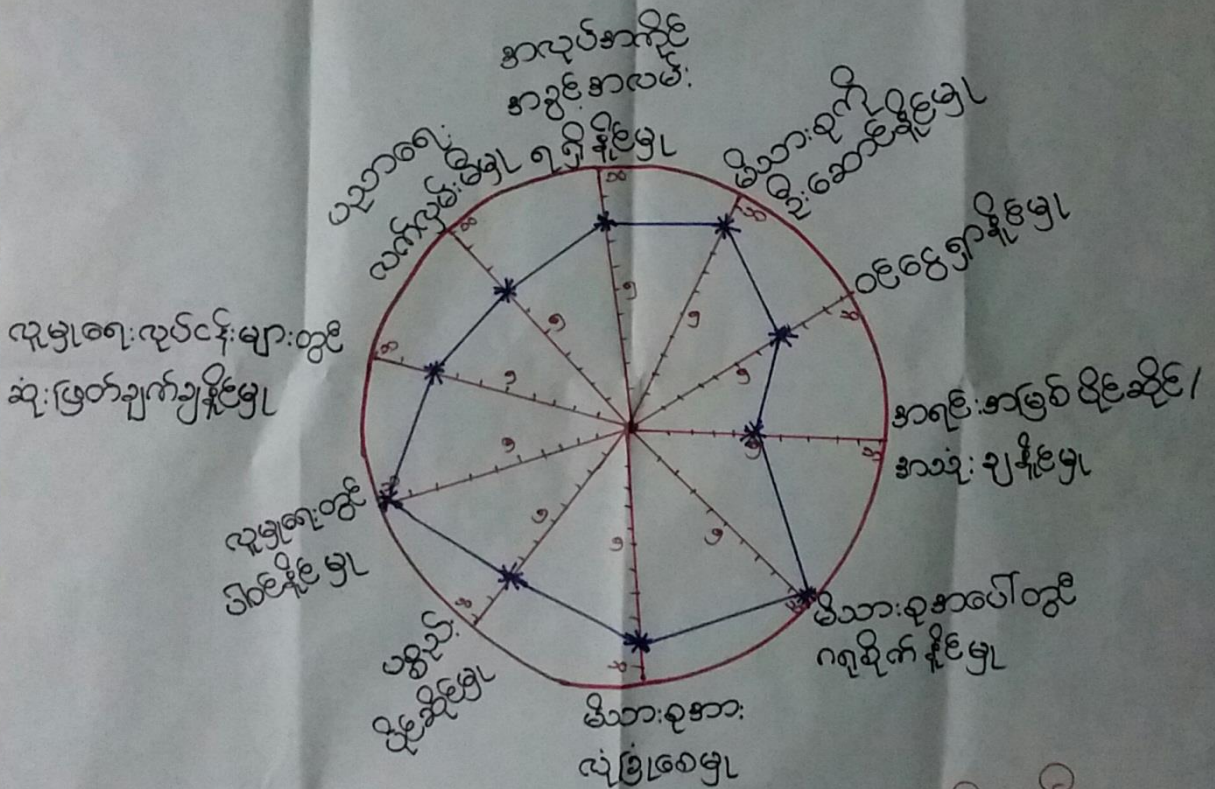 အလုပ်အကိုင်
အခွင့်အလမ်း
ရရှိနိုင်မှု
မိသားစုကို
ဦးဆောင်နိုင်မှု
ဝင်ငွေရှာနိုင်မှု
အရင်းအမြစ်ပိုင်ဆိုင်/
အသုံးချနိုင်မှု
မိသားစုအပေါ်တွင်
ဂရုစိုက်နိုင်မှု
မိသားစုအား
လုံခြုံစေမှု
ပစ္စည်း
ပိုင်ဆိုင်မှု
လူမှုရေးတွင်
ပါဝင်နိုင်မှု
လူမှုရေးလုပ်ငန်းများတွင်
ဆုံးဖြတ်ချက်ချနိုင်မှု
ပညာရေး
လက်လှမ်းမီမှု
၁၀
၁၀
၁၀
၁၀
၁၀
၁၀
၁၀
၁၀
၁၀
၁၀
၅
၅
၅
၅
၅
၅
၅
၅
၅
၅